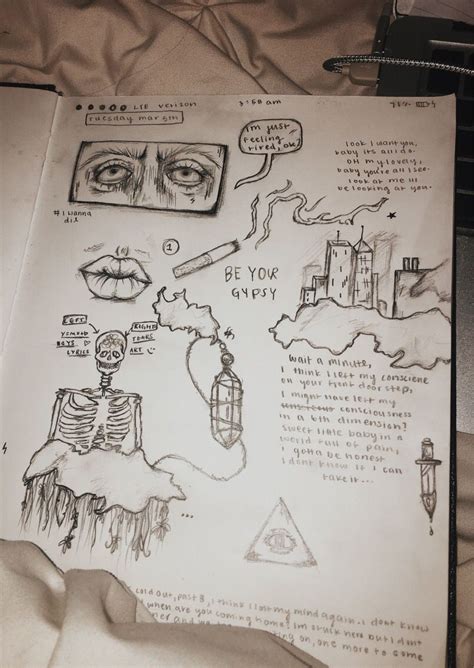 LTE verizon
3:50 am
tuesday mar 5th
I'm just
feeling
tired, ok.
look I want you,
baby its all I do.
Oh my lovely,
baby you're all I see.
Look at me us
be looking at you.
#I wanna
die
1
BE YOUR
GYPSY
LEFT
RIGHT
BOYS
LYRICS
TEARS
ART
wait a minute,
I think I left my conscience
on your front door step,
I might have left my
consciousness
in a 6th dimension?
sweet little baby in a
world full of pain,
I gotta be honest
I dont know if I can
take it...
cold out, past 8, i think i lost my mind again. i dont know
when are you coming home? Im stuck here but I dont
on, one more to some